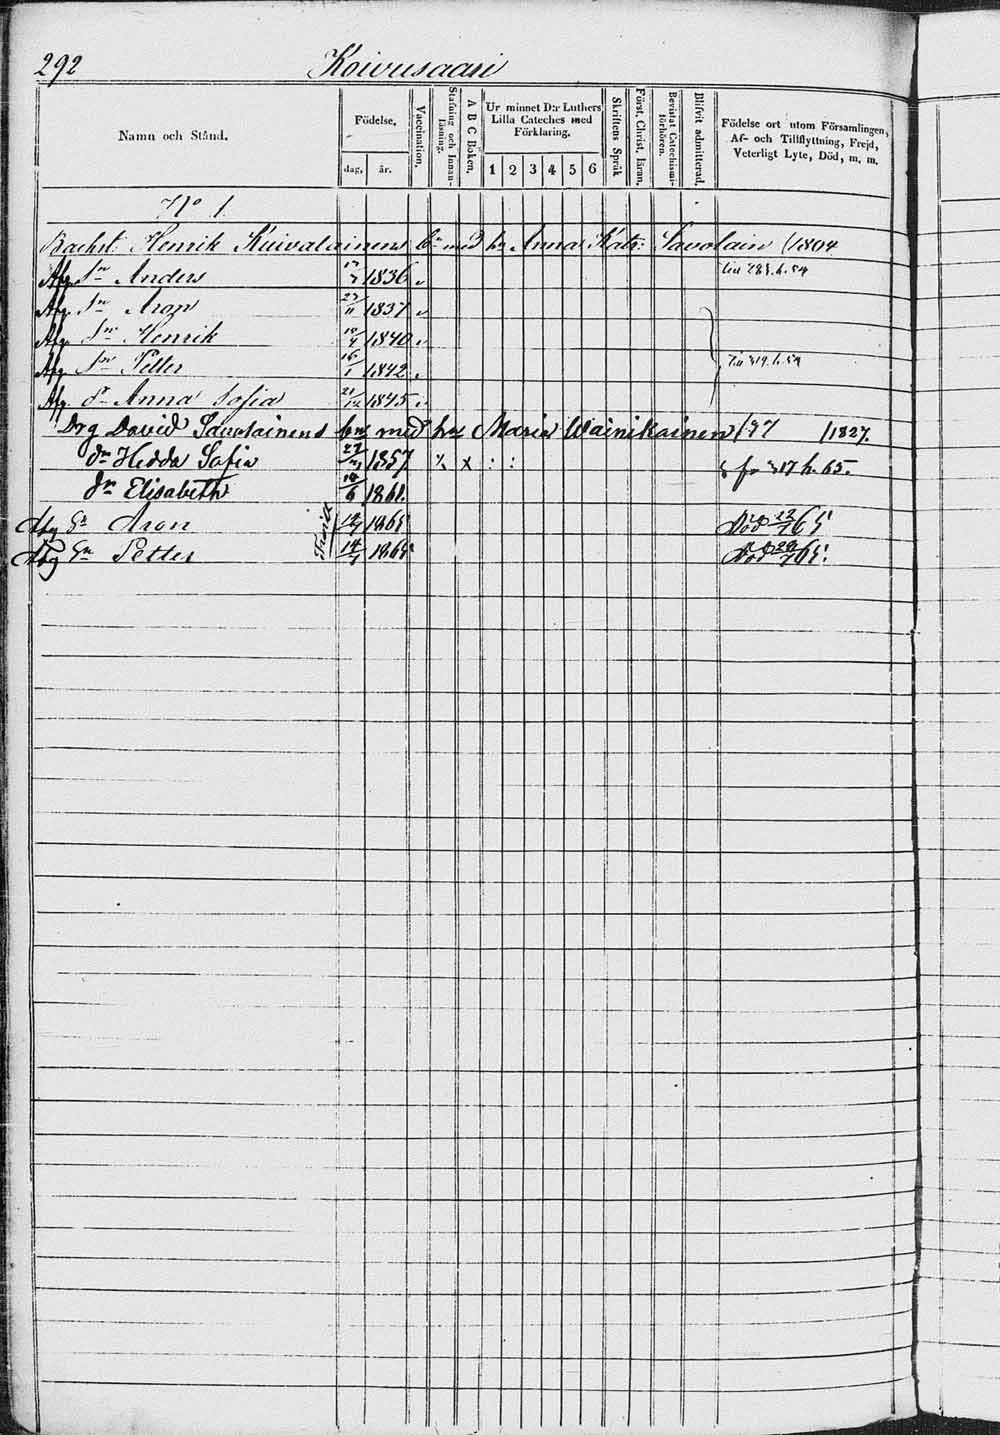 292 Koivusaari
Namn och Stånd. Födelse. dag. år. Vaccination. Stafning och Innanläsning. A B C Boken. Ur minnet D:r Luthers Lilla Cateches med Förklaring. 1 2 3 4 5 6 Skriftens Språk Först. Christ. läran. Bevistat Catechismiförhören. Blifvit admitterad. Födelse ort utom Församlingen, Af- och Tillflyttning, Frejd, Veterligt Lyte, Död, m. m.
No 1.
Henrik Kuivalainens bn med hu Anna Katr: Savolain /1804
Afg Sn Anders 1836
Afg Sn Aron 1837
Afg Sn Henrik 1840
Afg Sn Petter 16/1 1842
Afg dr Anna Sofia 1845
Drg David Savolainens bn med hu Maria Wainikainen /97 /1827.
dr Hedda Sofia 1857 x : : fr 317 h. 65.
dr Elisabeth 1861.
Afg Sn Aron 1865 Död 65
Afg Sn Petter 1865 Död 65.